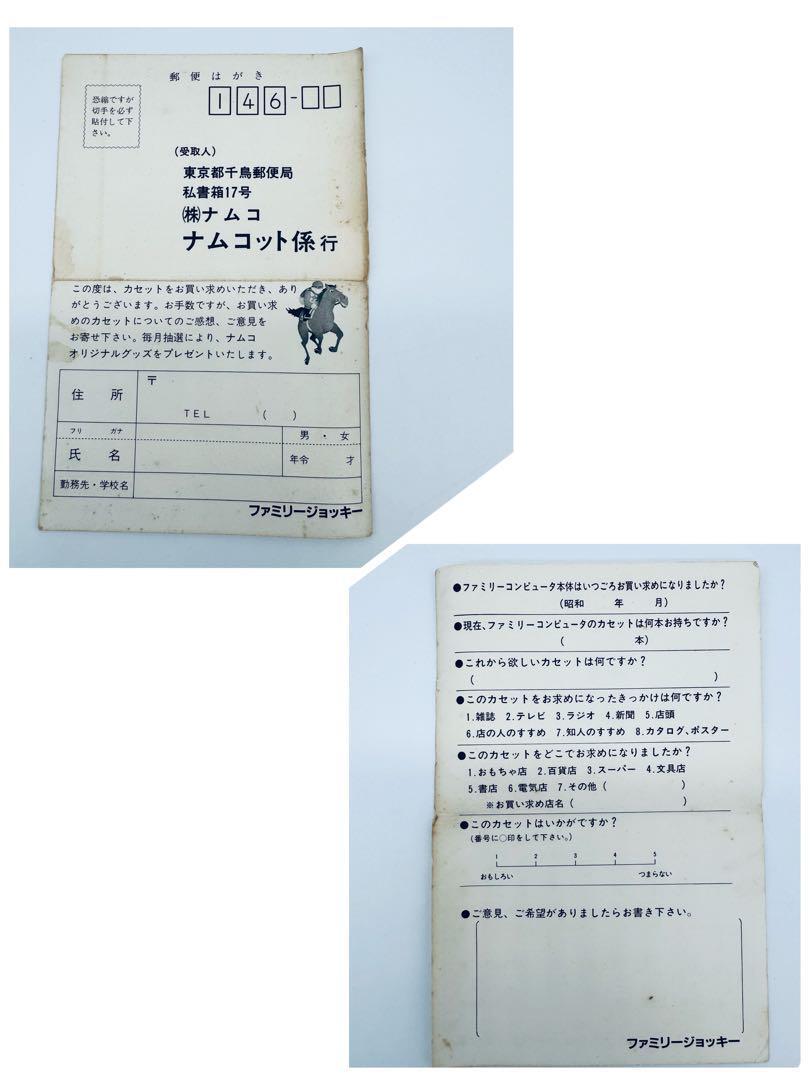 郵便はがき
恐縮ですが
切手を必ず
貼付して下
さい。
146-
(受取人)
東京都千鳥郵便局
私書箱17号
㈱ナムコ
ナムコット係 行
この度は、カセットをお買い求めいただき、あり
がとうございます。お手数ですが、お買い求
めのカセットについてのご感想、ご意見を
お寄せ下さい。毎月抽選により、ナムコ
オリジナルグッズをプレゼントいたします。
住 所
〒
TEL ( )
フリ ガナ
男・女
氏 名
年令 才
勤務先・学校名
ファミリージョッキー
●ファミリーコンピュータ本体はいつごろお買い求めになりましたか?
(昭和 年 月)
●現在、ファミリーコンピュータのカセットは何本お持ちですか?
( 本)
●これから欲しいカセットは何ですか?
( )
●このカセットをお求めになったきっかけは何ですか?
1.雑誌 2.テレビ 3.ラジオ 4.新聞 5.店頭
6.店の人のすすめ 7.知人のすすめ 8.カタログ、ポスター
●このカセットをどこでお求めになりましたか?
1.おもちゃ店 2.百貨店 3.スーパー 4.文具店
5.書店 6.電気店 7.その他( )
※お買い求め店名( )
●このカセットはいかがですか?
(番号に○印をして下さい。)
1 2 3 4 5
おもしろい つまらない
●ご意見、ご希望がありましたらお書き下さい。
ファミリージョッキー